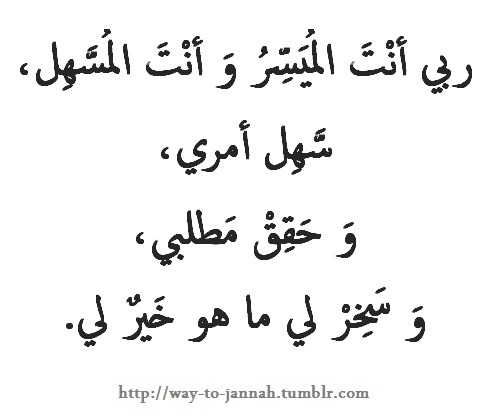 ربي أنْتَ المُيَسِّرُ وَ أنْتَ المُسَّهِل،
سَّهِل أمري،
وَ حَقِقْ مَطلبي،
وَ سَخِرْ لي ما هو خَيرٌ لي.
http://way-to-jannah.tumblr.com